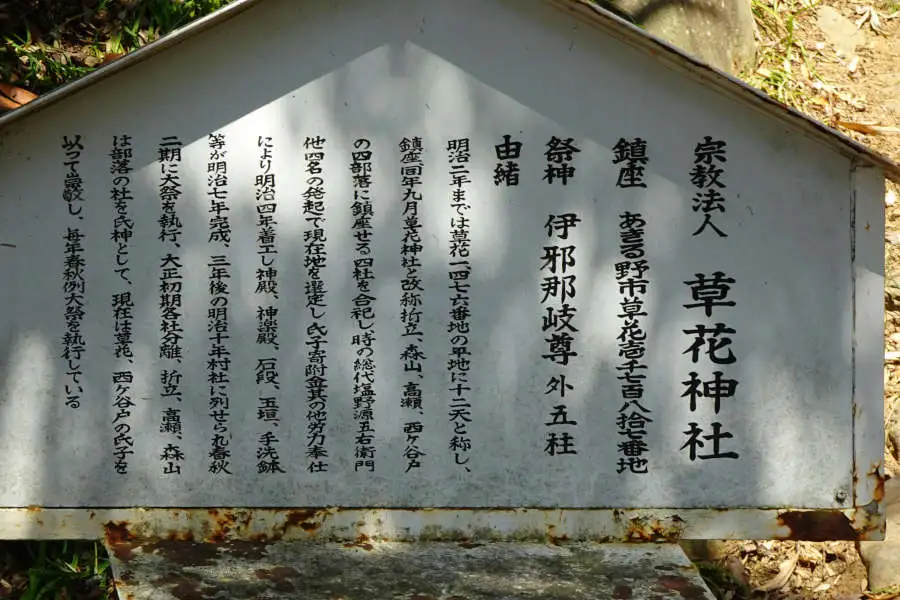 宗教法人 草花神社
鎮座 あきる野市草花壱千七百八拾壱番地
祭神 伊邪那岐尊 外五柱
由緒
明治二年までは草花一、四七六番地の平地に十二天と称し、
鎮座同年九月草花神社と改称折立、森山、高瀬、西ケ谷戸
の四部落に鎮座せる四社を合祀し、時の総代塩野源五右衛門
他四名の発起で現在地を選定し氏子寄附金其の他労力奉仕
により明治四年着工し神殿、神楽殿、石段、玉垣、手洗鉢
等が明治七年完成、三年後の明治十年村社に列せられ春秋
二期に大祭を執行、大正初期各社分離、折立、高瀬、森山
は部落の社を氏神として、現在は草花、西ケ谷戸の氏子を
以って崇敬し、毎年春秋例大祭を執行している